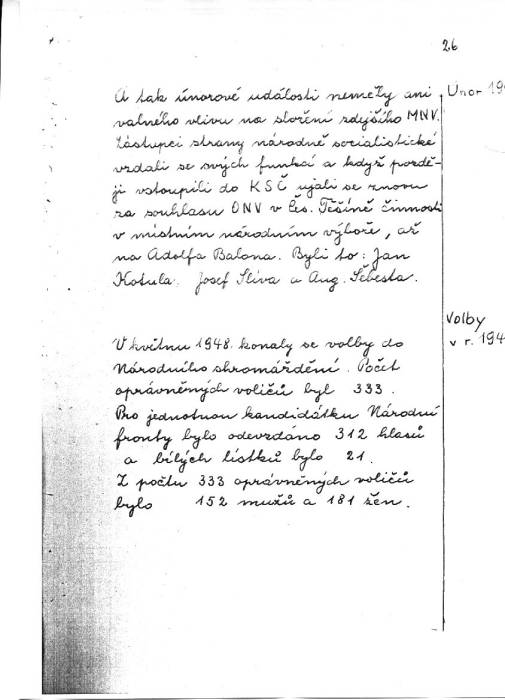 26
A tak únorové události neměly ani
valného vlivu na složení zdejšího MNV.
Zástupci strany národně socialistické
vzdali se svých funkcí a když pozdě-
ji vstoupili do KSČ ujali se znovu
za souhlasu ONV v Čes. Těšíně činnosti
v místním národním výboře, až
na Adolfa Balona. Byli to: Jan
Kotula. Josef Slíva a Aug. Šebesta.
Únor 19
V květnu 1948. konaly se volby do
Národního shromáždění. Počet
oprávněných voličů byl 333.
Pro jednotnou kandidátku Národní
fronty bylo odevzdáno 312 hlasů
a bílých lístků bylo 21.
Z počtu 333 oprávněných voličů
bylo 152 mužů a 181 žen.
Volby
v r. 194